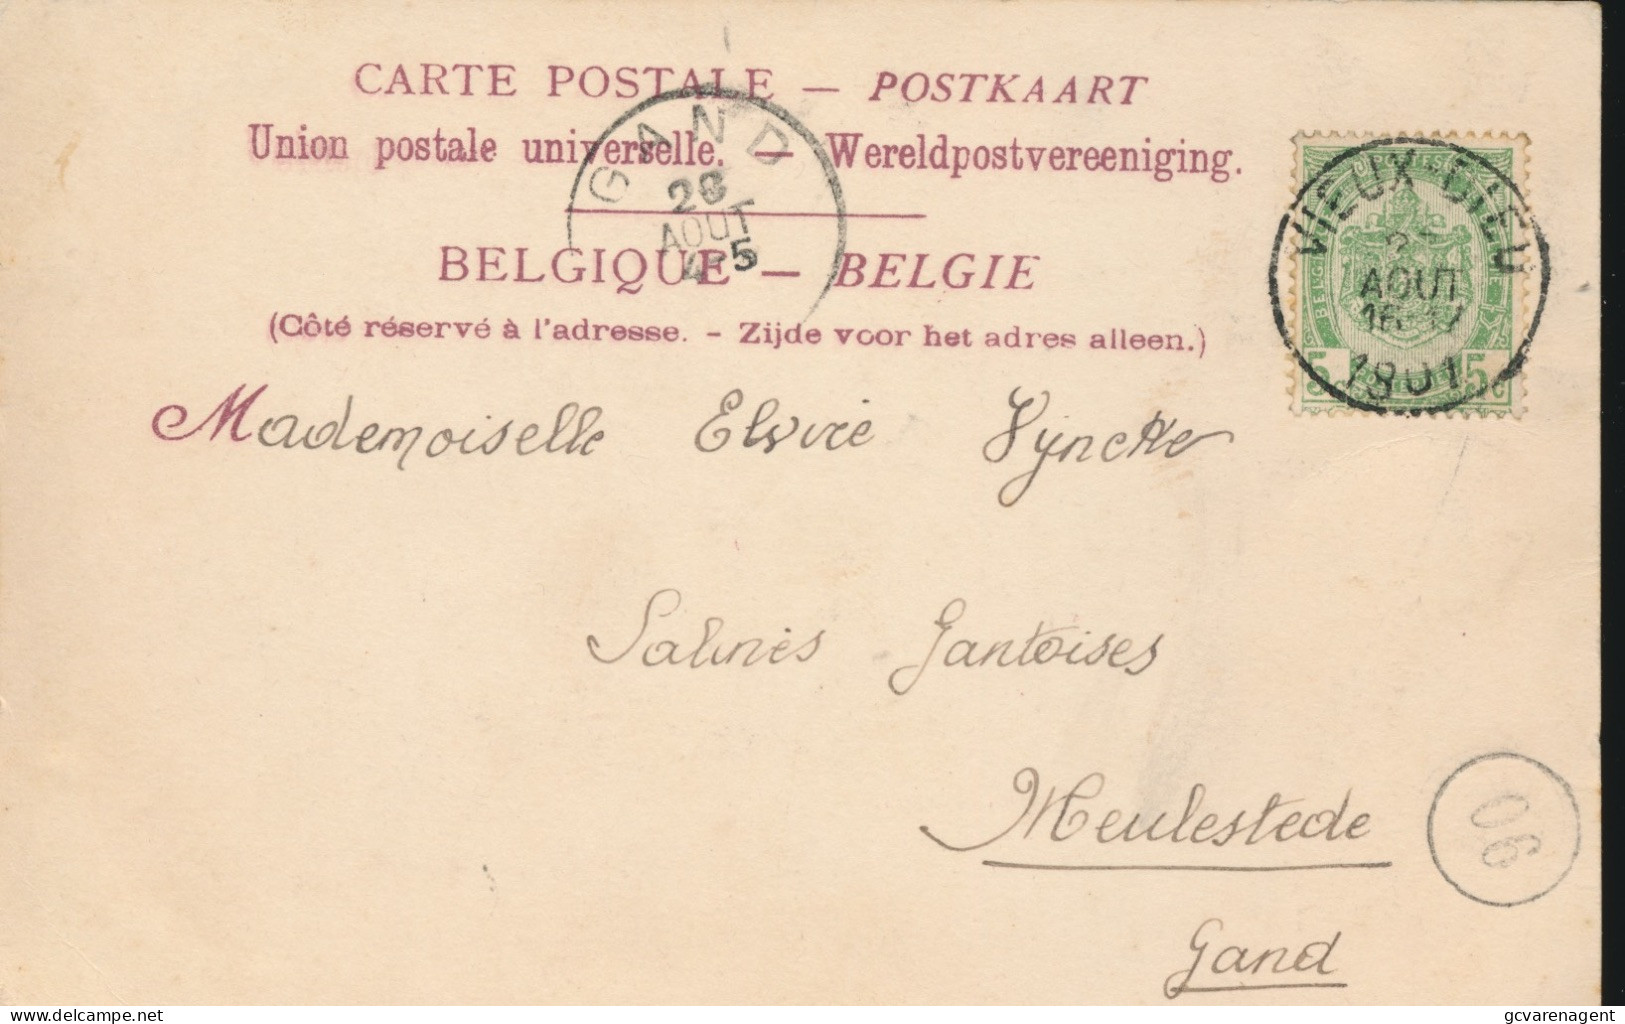 CARTE POSTALE — POSTKAART
Union postale universelle. — Wereldpostvereeniging.
GAND
AOUT
5
VIEUX-DIEU
AOUT
16-17
1901
5c 5c
BELGIQUE — BELGIE
(Côté réservé à l'adresse. - Zijde voor het adres alleen.)
Mademoiselle Elvire Vyncke
Salines Gantoises
Meulestede
Gand
06
delcampe.net
gcvarenagent